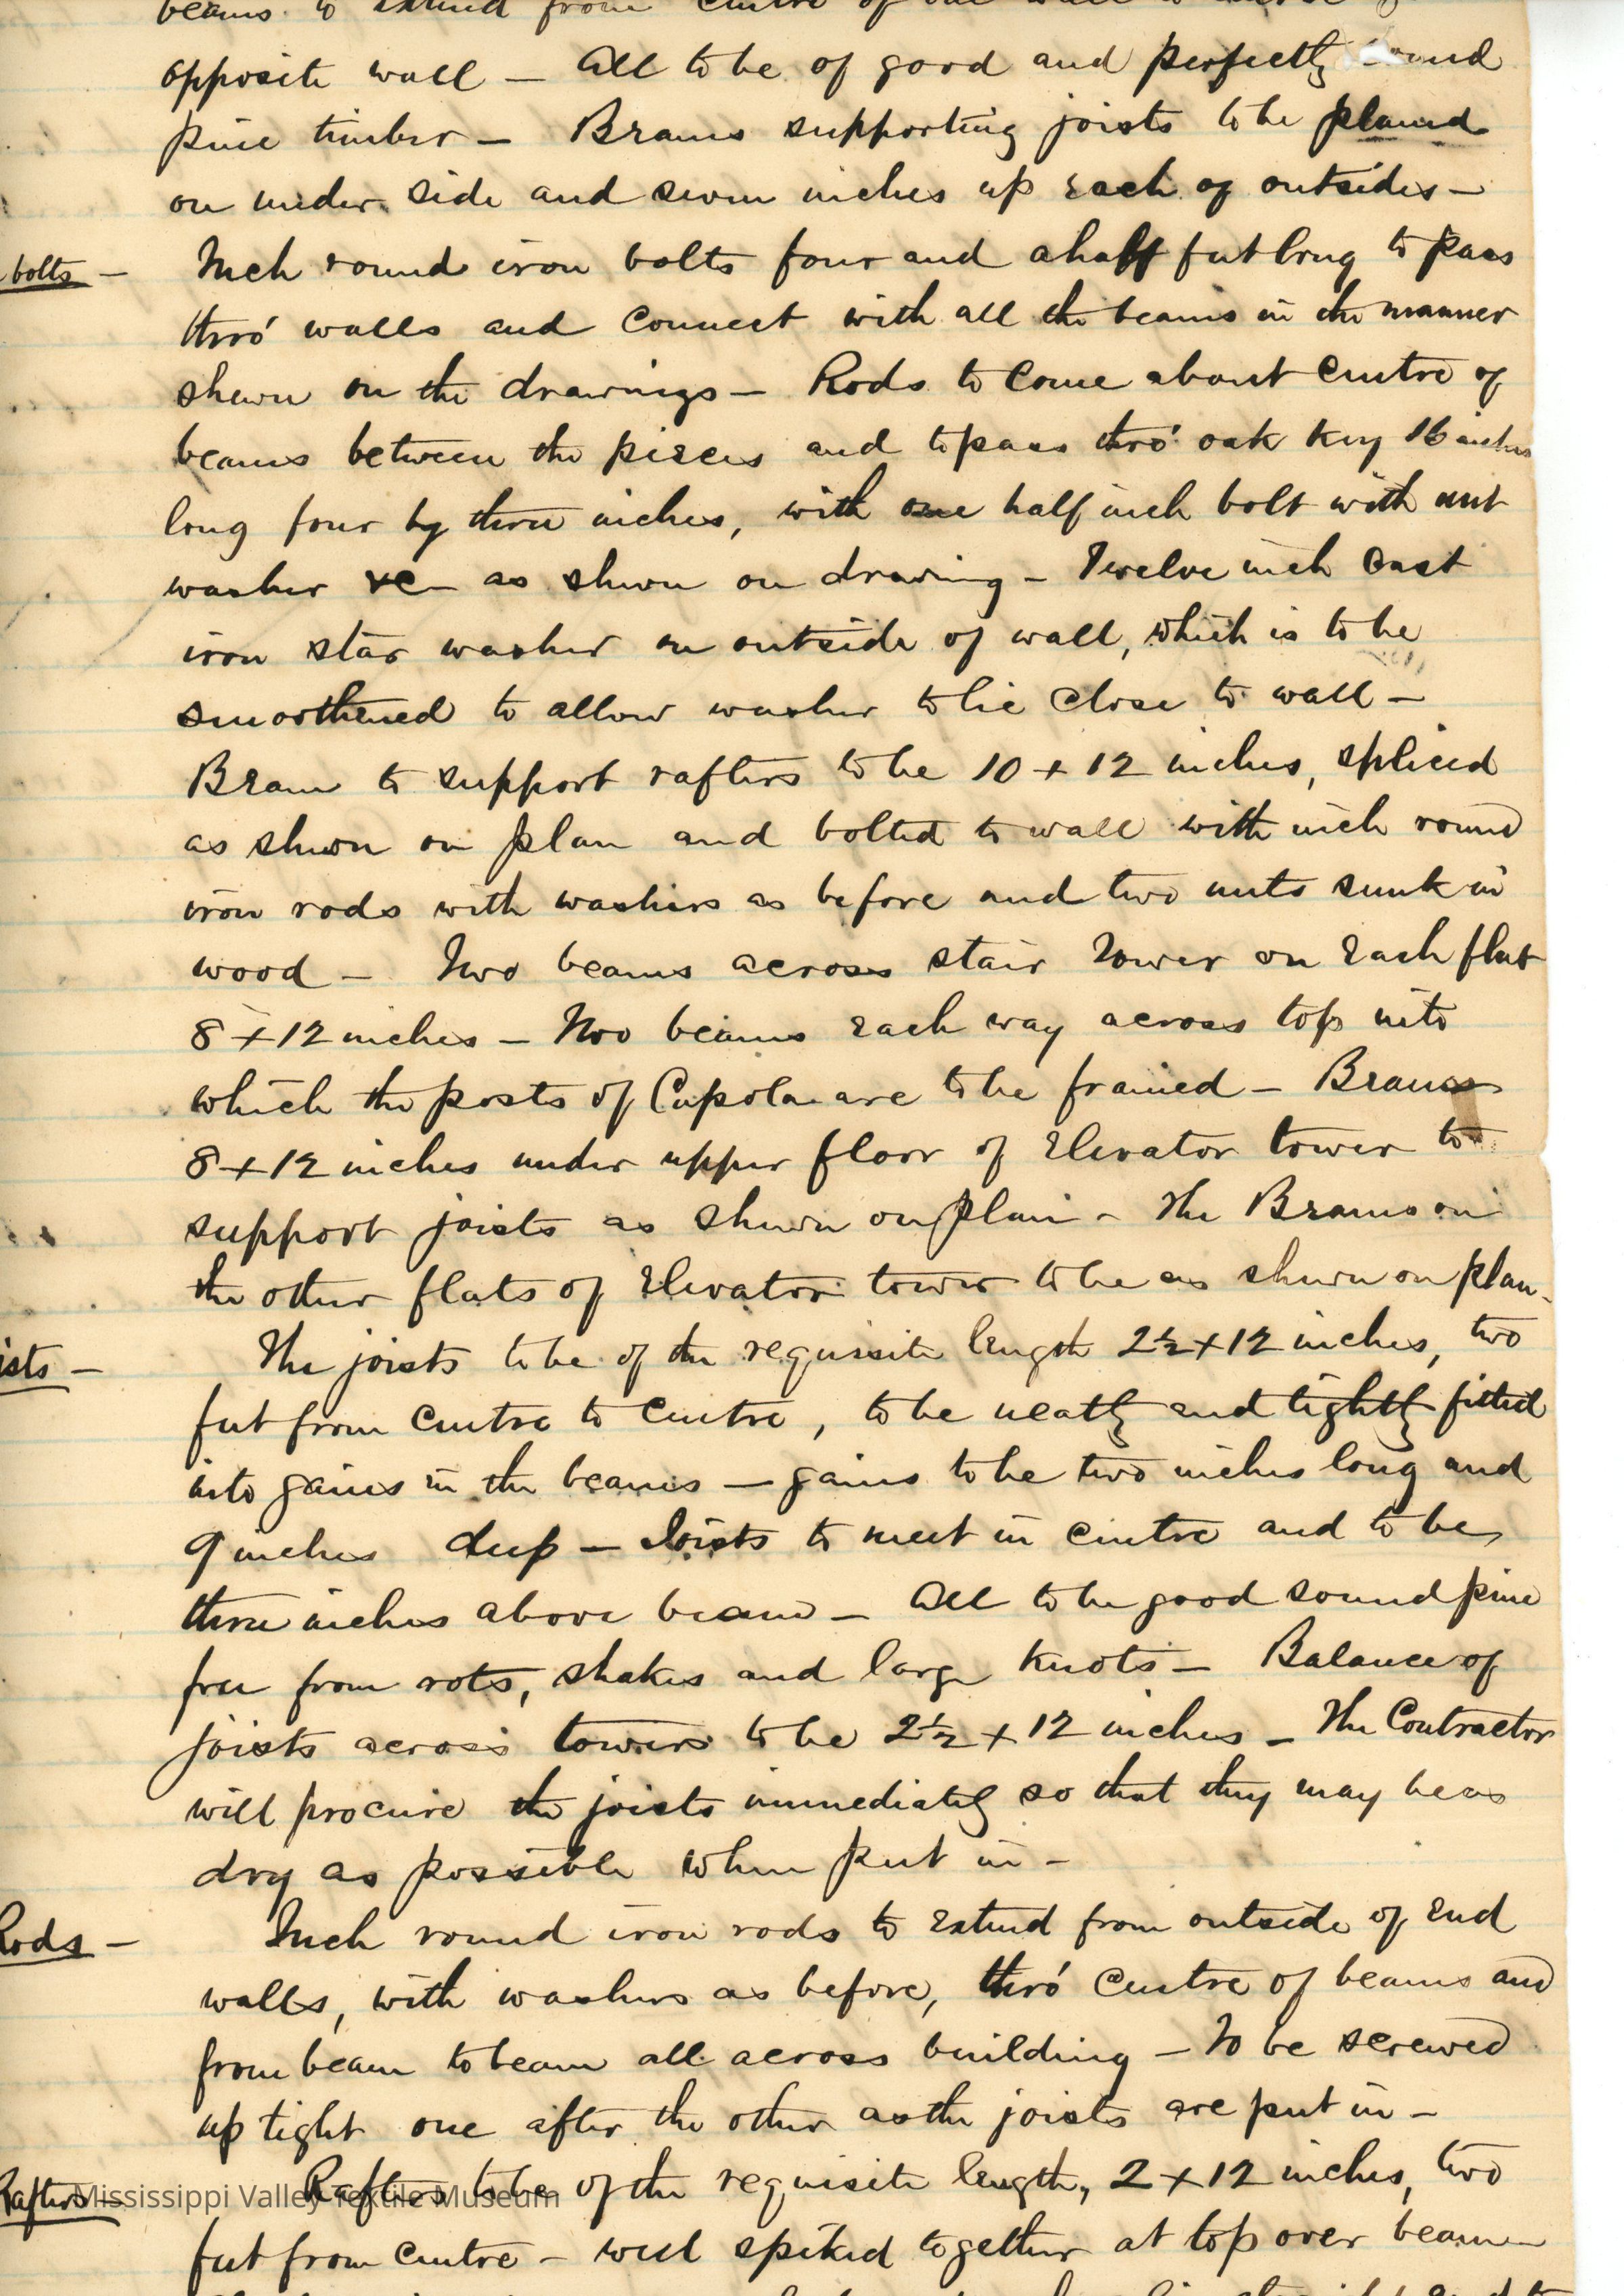 beams to extend from centre of one wall to centre of
opposite wall — All to be of good and perfectly sound
pine timber — Beams supporting joists to be planed
on under side and seven inches up each of outsides —
bolts — Inch round iron bolts four and a half feet long to pass
thro' walls and connect with all the beams in the manner
shewn on the drawings — Rods to come about centre of
beams between the pieces and to pass thro' oak key 16 inches
long four by three inches, with one half inch bolt with nut
washer &c — as shewn on drawing — Twelve inch cast
iron star washer on outside of wall, which is to be
smoothened to allow washer to lie close to wall —
Beam to support rafters to be 10 + 12 inches, spliced
as shewn on plan and bolted to wall with inch round
iron rods with washers as before and two nuts sunk in
wood — Two beams across stair tower on each flat
8 + 12 inches — Two beams each way across top into
which the posts of Cupola are to be framed — Beams
8 + 12 inches under upper floor of Elevator tower to
support joists as shewn on plan — The Beams on
the other flats of Elevator tower to be as shewn on plan —
ists — The joists to be of the requisite length 2½ + 12 inches, two
feet from centre to centre, to be neatly and tightly fitted
into gains in the beams — gains to be two inches long and
9 inches deep — Joists to meet in centre and to be
three inches above beam — All to be good sound pine
free from rots, shakes and large knots — Balance of
joists across towers to be 2½ + 12 inches — The Contractor
will procure the joists immediately so that they may be as
dry as possible when put in —
Rods — Inch round iron rods to extend from outside of end
walls, with washers as before, thro' centre of beams and
from beam to beam all across building — To be screwed
up tight one after the other as the joists are put in —
Rafters — Rafters to be of the requisite length, 2 + 12 inches, two
Mississippi Valley Textile Museum
feet from centre — well spiked together at top over beam —